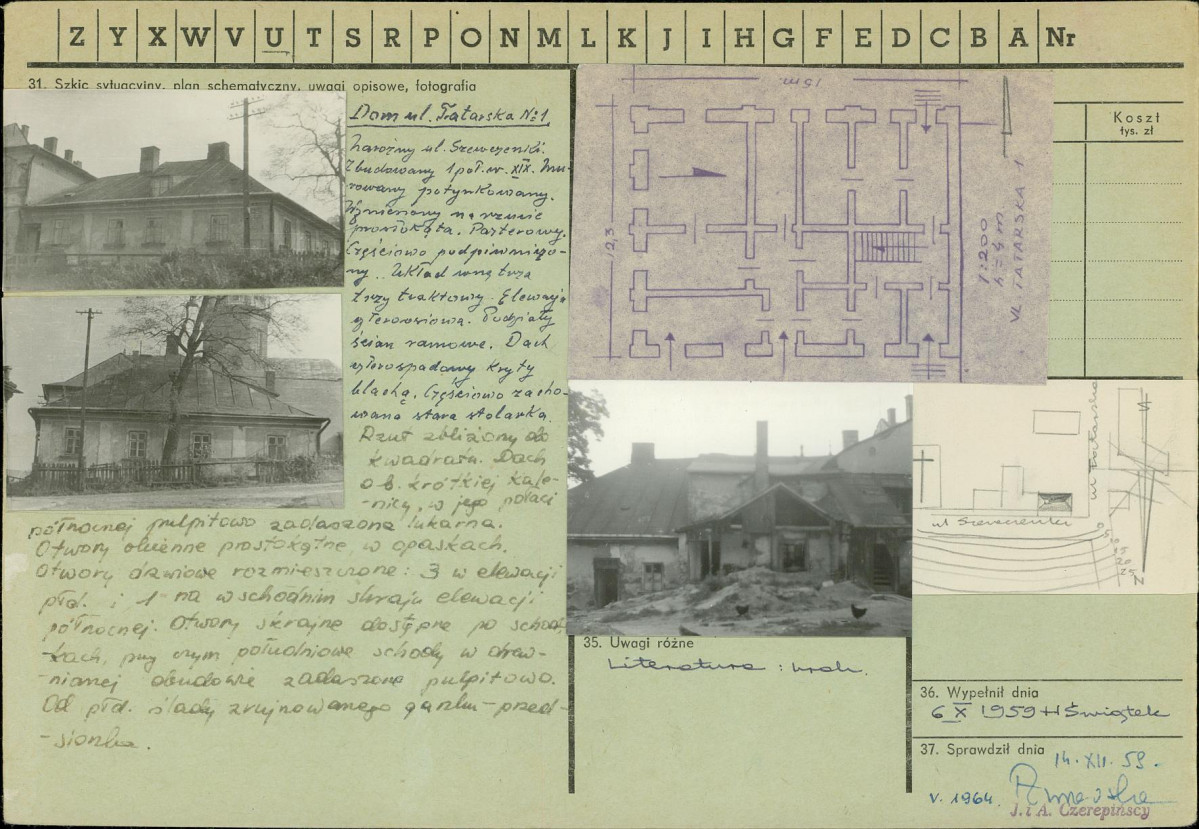 Z Y X W V U T S R P O N M L K J I H G F E D C B A Nr
31. Szkic sytuacyjny, plan schematyczny, uwagi opisowe, fotografia
Dom ul. Tatarska № 1
Narożny ul. Szewczenki.
Zbudowany 1 poł. w. XIX. Mu-
rowany potynkowany.
Wzniesiony na rzucie
prostokąta. Parterowy.
Częściowo podpiwniczo-
ny. Układ wnętrza
trzy traktowy. Elewacja
czteroosiowa. Podziały
ścian ramowe. Dach
czterospadowy kryty
blachą. Częściowo zacho-
wana stara stolarka.
Rzut zbliżony do
kwadratu. Dach
o b. krótkiej kale-
-nicy, w jego połaci
północnej pulpitowo zadaszona lukarna.
Otwory okienne prostokątne, w opaskach.
Otwory drzwiowe rozmieszczone: 3 w elewacji
płd. i 1 na wschodnim skraju elewacji
północnej. Otwory skrajne dostępne po schod-
kach, przy czym południowe schody w drew-
-nianej obudowie zadaszone pulpitowo.
Od płd. ślady zrujnowanego ganku-przed-
-sionka.
15 m.
12,3
1:200
UL TATARSKA 1
Koszt
tys. zł
ul Tatarska
ul Szewczenki
0 5 10 15 20 25
N
35. Uwagi różne
Literatura : brak.
36. Wypełnił dnia
6 X 1959 H Świątek
37. Sprawdził dnia
14. XII. 59.
V. 1964.
J. i A. Czerepińscy